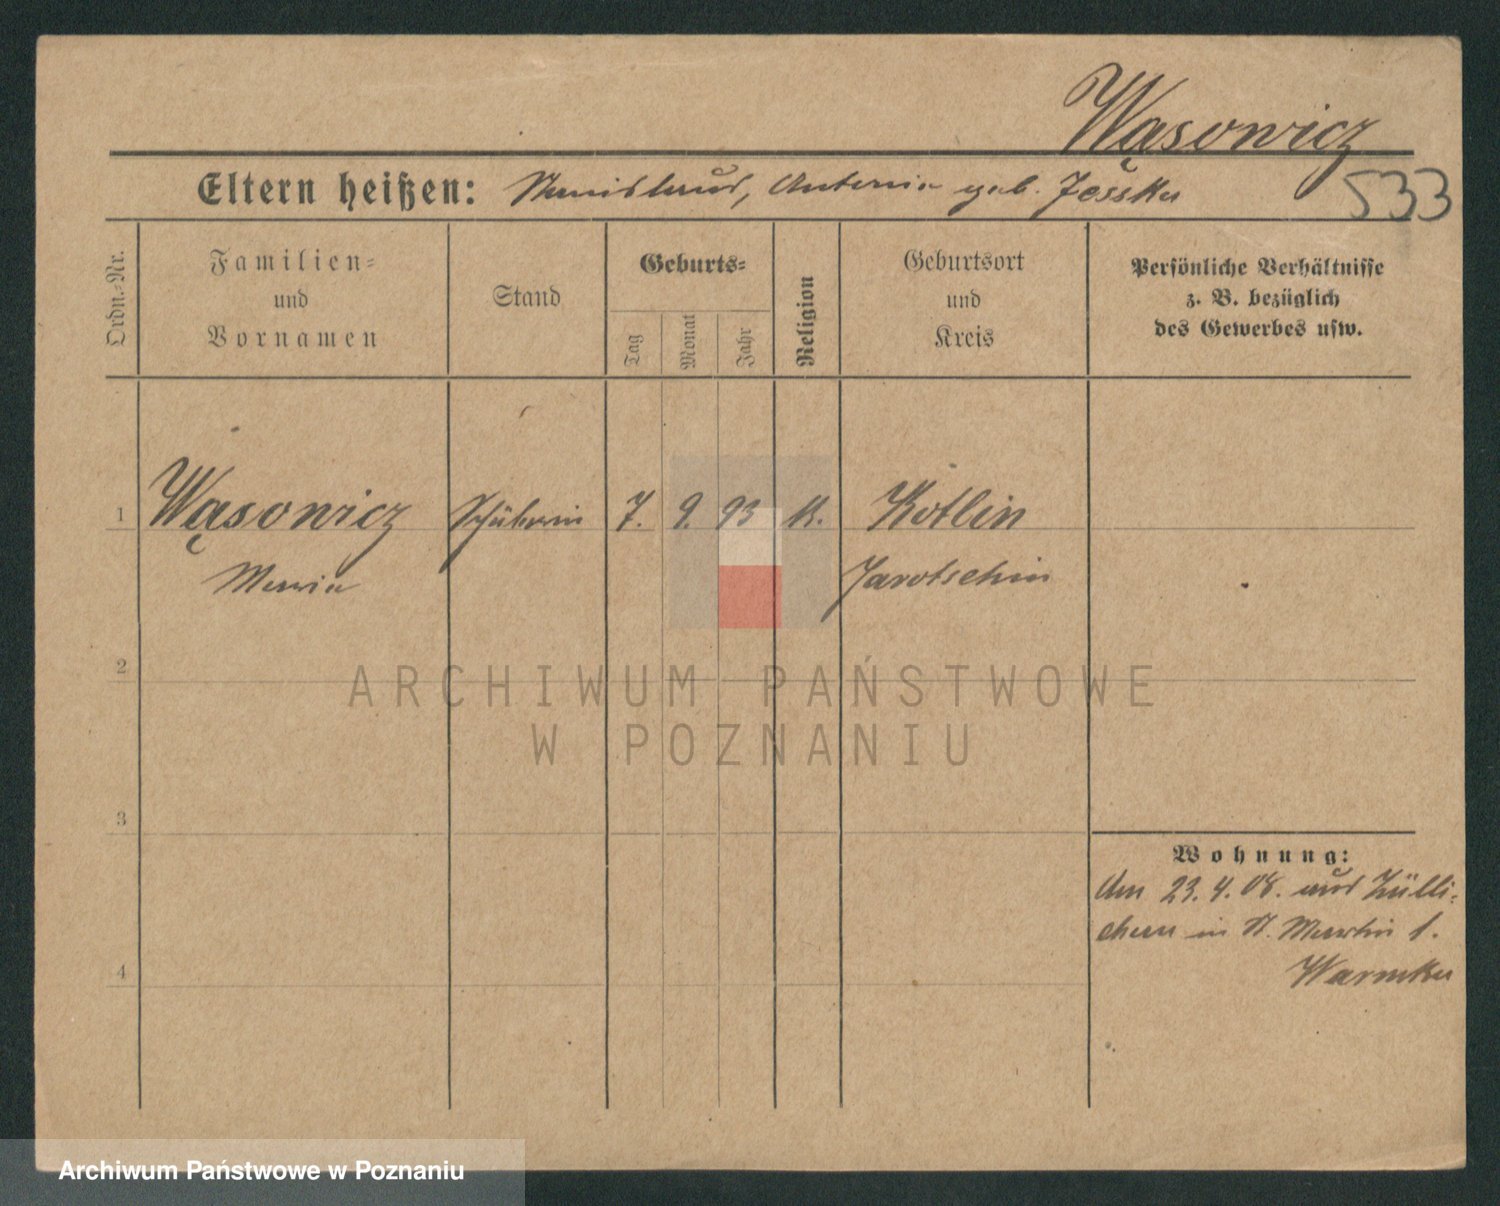 Wąsowicz
Eltern heißen: Stanislaus, Antonia geb. Jesska
533
Ordn.-Nr.
Familien-
und
Vornamen
Stand
Geburts-
Tag
Monat
Jahr
Religion
Geburtsort
und
Kreis
Persönliche Verhältnisse
z. B. bezüglich
des Gewerbes usw.
1 Wąsowicz Schülerin 7. 9. 93 K. Kotlin
Maria Jarotschin
2
ARCHIWUM PAŃSTWOWE
W POZNANIU
3
Wohnung:
Am 23.4.08. aus Zülli-
chau in St. Martin 1.
4
Archiwum Państwowe w Poznaniu